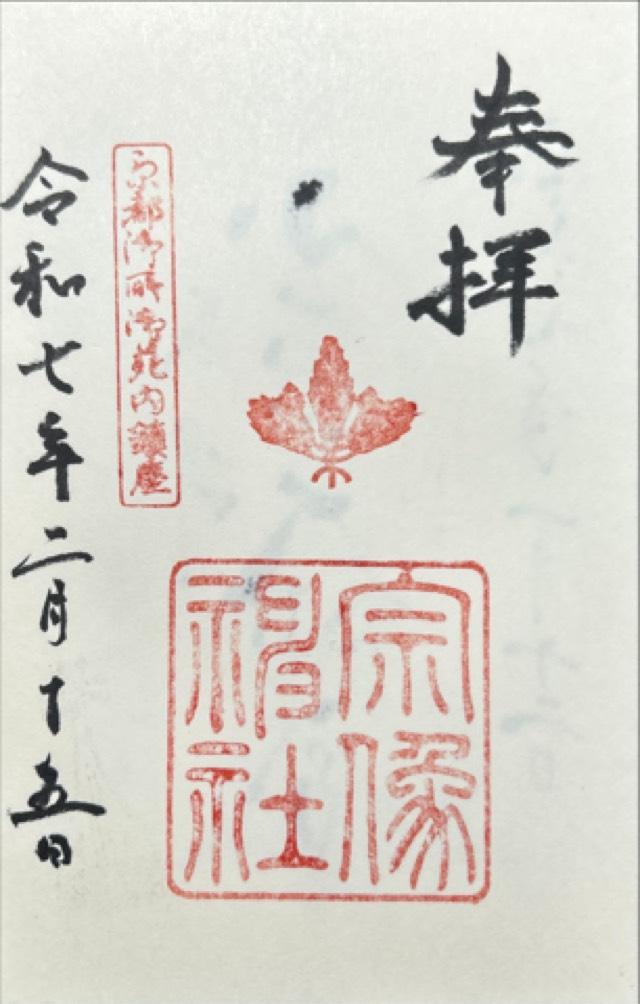 奉拝
宗像
神社
京都御所御苑内鎮座
令和七年二月十五日